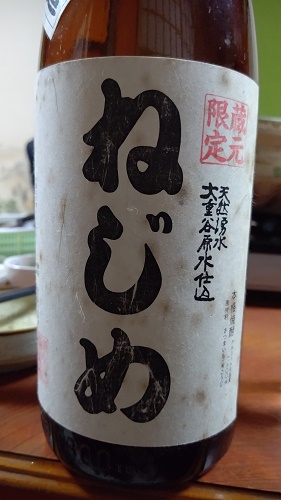 ねじめ
蔵元
限定
天然湧水
大重谷原水仕込
本格焼酎